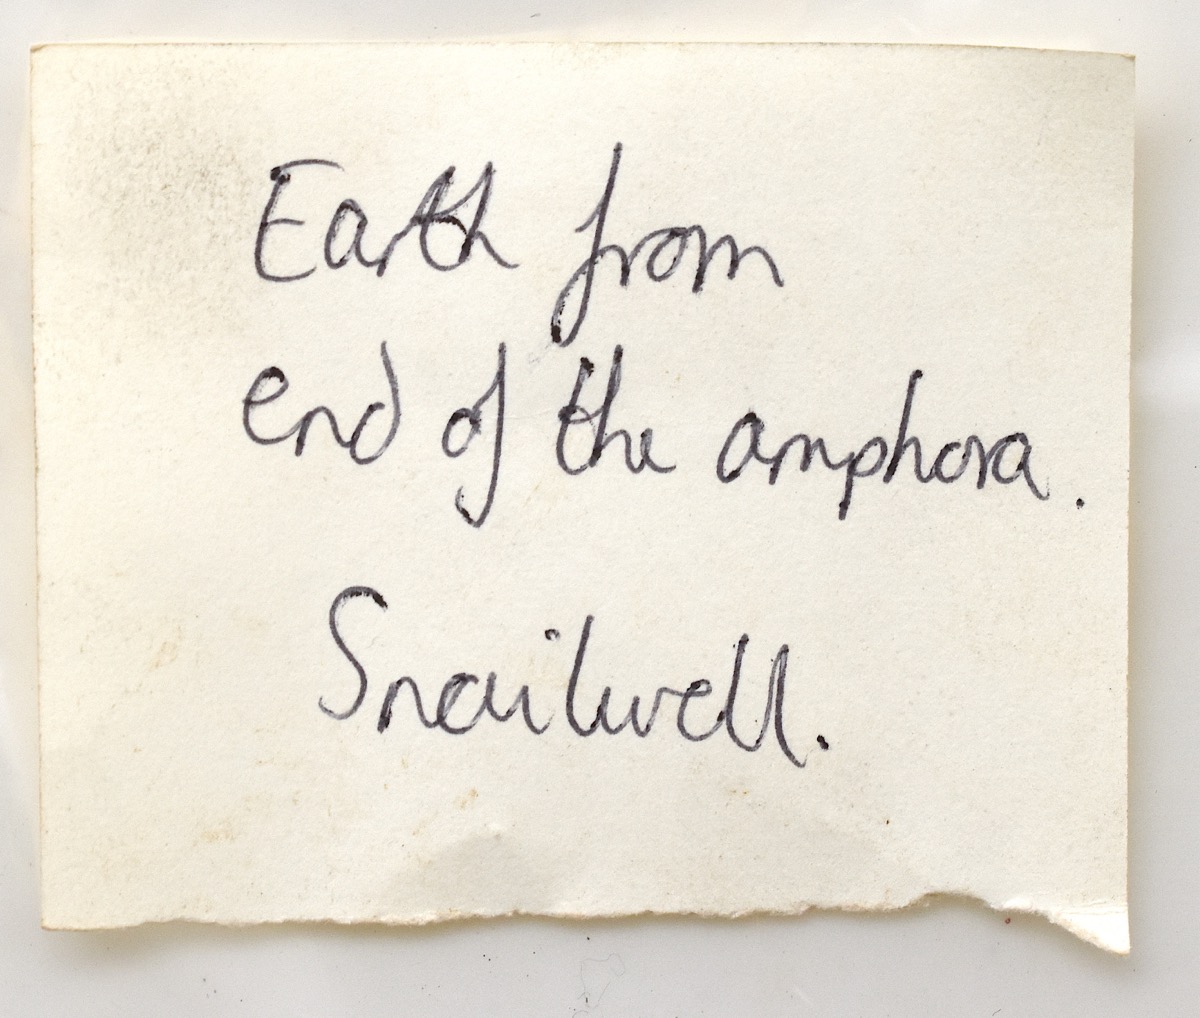 Earth from
end of the amphora.
Snailwell.